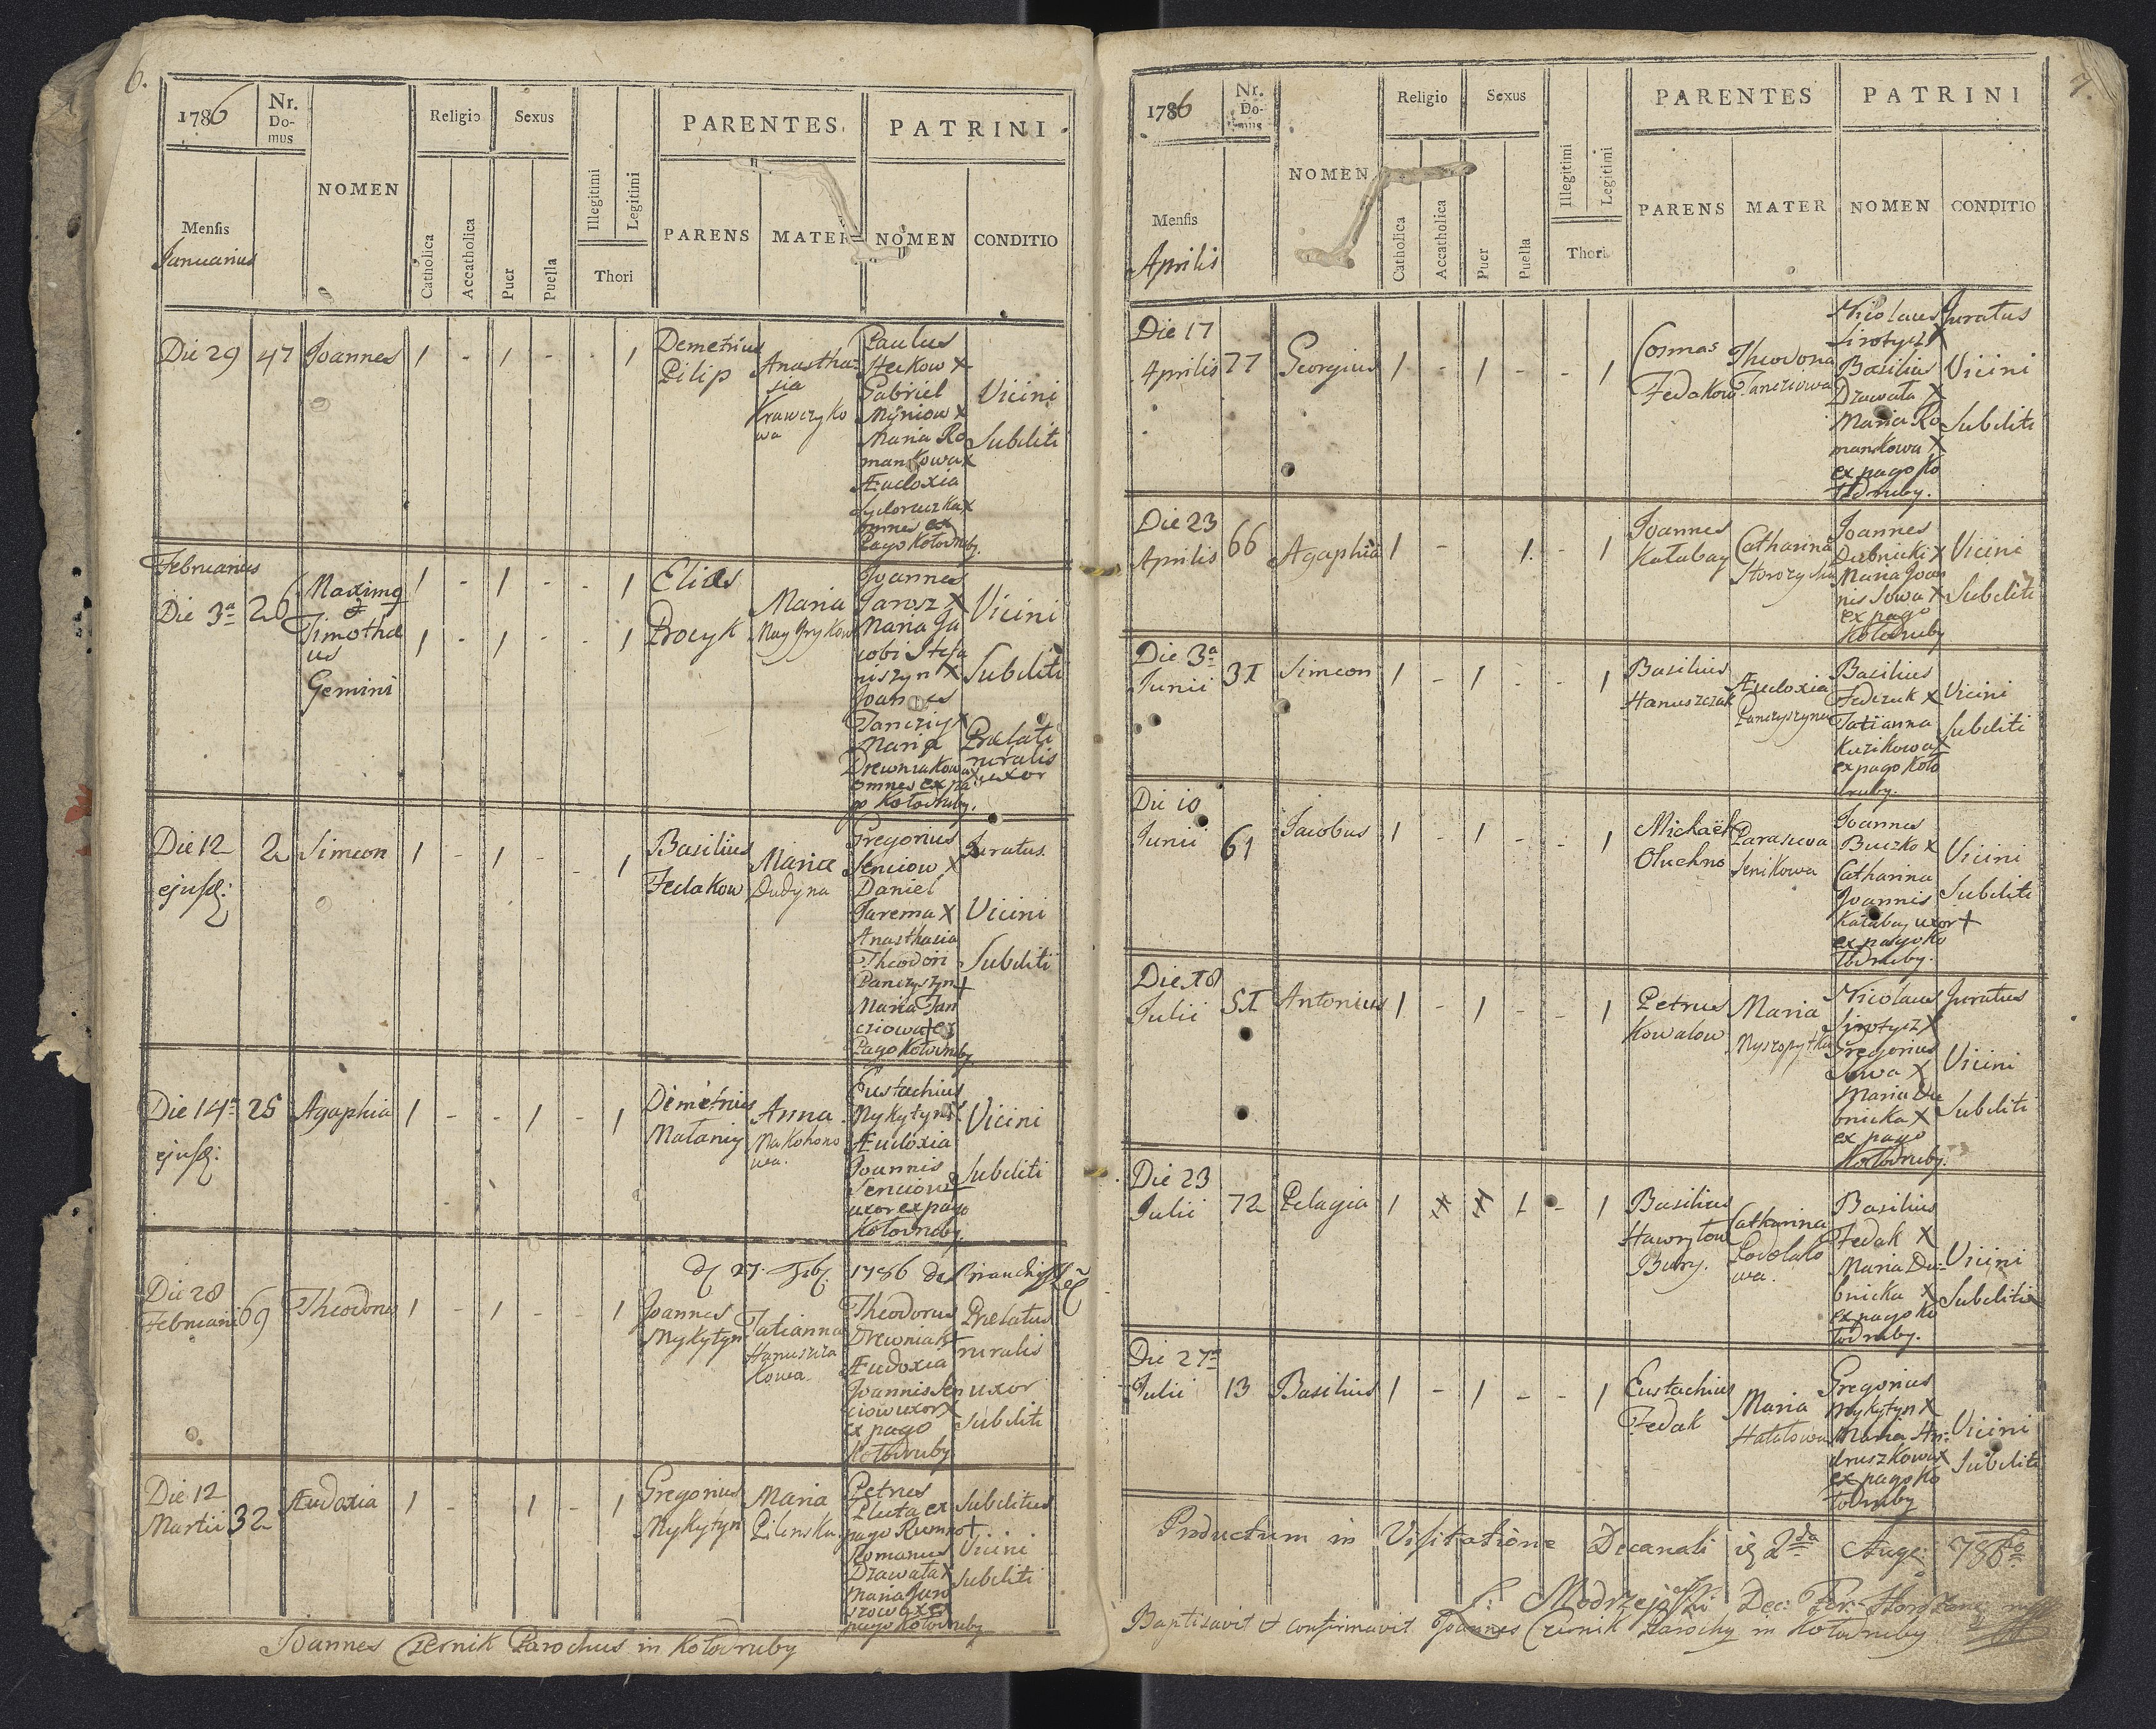 6.
1786
Nr. Do-mus
NOMEN
Religio
Sexus
PARENTES.
PATRINI
Mensis
Januarius
Catholica
Accatholica
Puer
Puella
Illegitimi
Legitimi
Thori
PARENS
MATER
NOMEN
CONDITIO
Die 29 47 Joannes 1 - 1 - - 1
Demetrius
Pilip
Anastha-
sia
Krawczyko
wa
Paulus
Steckow X
Gabriel
Myniow X
Maria Ro
mankowa X
Æudoxia
Sydoruczka X
omnes ex
Pago Kołodruby.
Vicini
Subditi
Februarius
Die 3a 26
Maximg
&
Timothæ
us
Gemini
1 - 1 - - 1
1 - 1 - - 1
Elias
Procyk
Maria
Joannes
Jarosz X
Maria Ja
cobi Stefa
niszyn X
Joannes
Tanczyj X
Maria
Drewniakowa X
omnes ex pa
go Kołodruby.
Vicini
Subditi
Prælati
ruralis
uxor
Die 12
ejusd:
2 Simeon 1 - 1 - - 1
Basilius
Fedakow
Maria
Dudyna
Gregorius
Senciow X
Daniel
Jarema X
Anasthasia
Theodori
Panczyszyn +
Maria Tan
cziowa + ex
Pago Kołodruby
Juratus.
Vicini
Subditi
Die 14a 25 Agaphia 1 - - 1 - 1
ejusd:
Demetrius
Malaniy
Anna
Makohono
wa.
Eustachius
Mykytyn X
Æudoxia
Joannis
Senciow
uxor ex pago
Kołodruby
Vicini
Subditi
d 27. Feb. 1786
Die 28
Februarii 69 Theodorus 1 - 1 - - 1
Joannes
Mykytyn
Tatianna
Hanuszcza
kowa
Theodorus
Drewniak +
Æudoxia
Joannis Sen
ciow uxor X
ex pago
Kołodruby
Prælatus
ruralis
uxor
Subditi
Die 12
Martii 32 Æudoxia 1 - - 1 - 1
Gregorius
Mykytyn
Maria
Pilinska.
Petrus
Pluta ex
pago Rumno +
Romanus
Dzawała X
Maria
pago Kołodruby
Subditus
Vicini
Subditi
Joannes Czernik Parochus in Kołodruby
7.
1786
Nr. Do-mus
NOMEN
Religio
Sexus
PARENTES
PATRINI
Mensis
Aprilis
Catholica
Accatholica
Puer
Puella
Illegitimi
Legitimi
Thori
PARENS
MATER
NOMEN
CONDITIO
Die 17
Aprilis 77 Georgius 1 - 1 - - 1
Cosmas
Fedakow
Theodora
Tancziowa
Nicolaus
Sirotycz X
Basilius
Dzawała X
Maria Ro
mankowa X
ex pago Ko
łodruby.
Juratus
Vicini
Subditi
Die 23
Aprilis 66 Agaphia 1 - 1. - 1
Joannes
Kałabay
Catharina
Joannes
Dubnicki X
Maria Joan
nis Sowa X
ex pago
Kołodruby
Vicini
Subditi
Die 3a
Junii 31 Simeon 1 - 1 - - 1
Basilius
Hanuszczak
Æudoxia
Panczyszyna
Basilius
Fedczuk X
Tatianna
Kuzikowa X
ex pago Koło
druby.
Vicini
Subditi
Die 10
Junii 61 Jacobus 1 - 1 - - 1
Michaël
Oluchno
Parascwa
Senikowa
Joannes
Buczko X
Catharina
Joannis
Kałabay uxor +
ex pago Ko
łodruby.
Vicini
Subditi
Die 18
Julii 51 Antonius 1 - 1 - - 1
Petrus
Kowalow
Maria
Nicolaus
Sirotycz X
Gregorius
Sowa X
Maria Du
bnicka X
ex pago
Kołodruby.
Juratus
Vicini
Subditi
Die 23
Julii 72 Pelagia 1 1 - 1
Basilius
Hawryłow
Bury.
Catharina
Podolako
wa.
Basilius
Fedak X
Maria Du-
bnicka X
ex pago Ko
łodruby.
Vicini
Subditi
Die 27a
Julii 13 Basilius 1 - 1 - - 1
Eustachius
Fedak
Maria
Hałałowa
Gregorius
Mykytyn X
Maria An-
druszkowa X
ex pago Ko
łodruby
Vicini
Subditi
Productum in Visitatione Decanali 2da Augi 786to
Modrzejoski Dec:
Baptisavit & confirmavit Joannes Czernik Parochg in Kołodruby